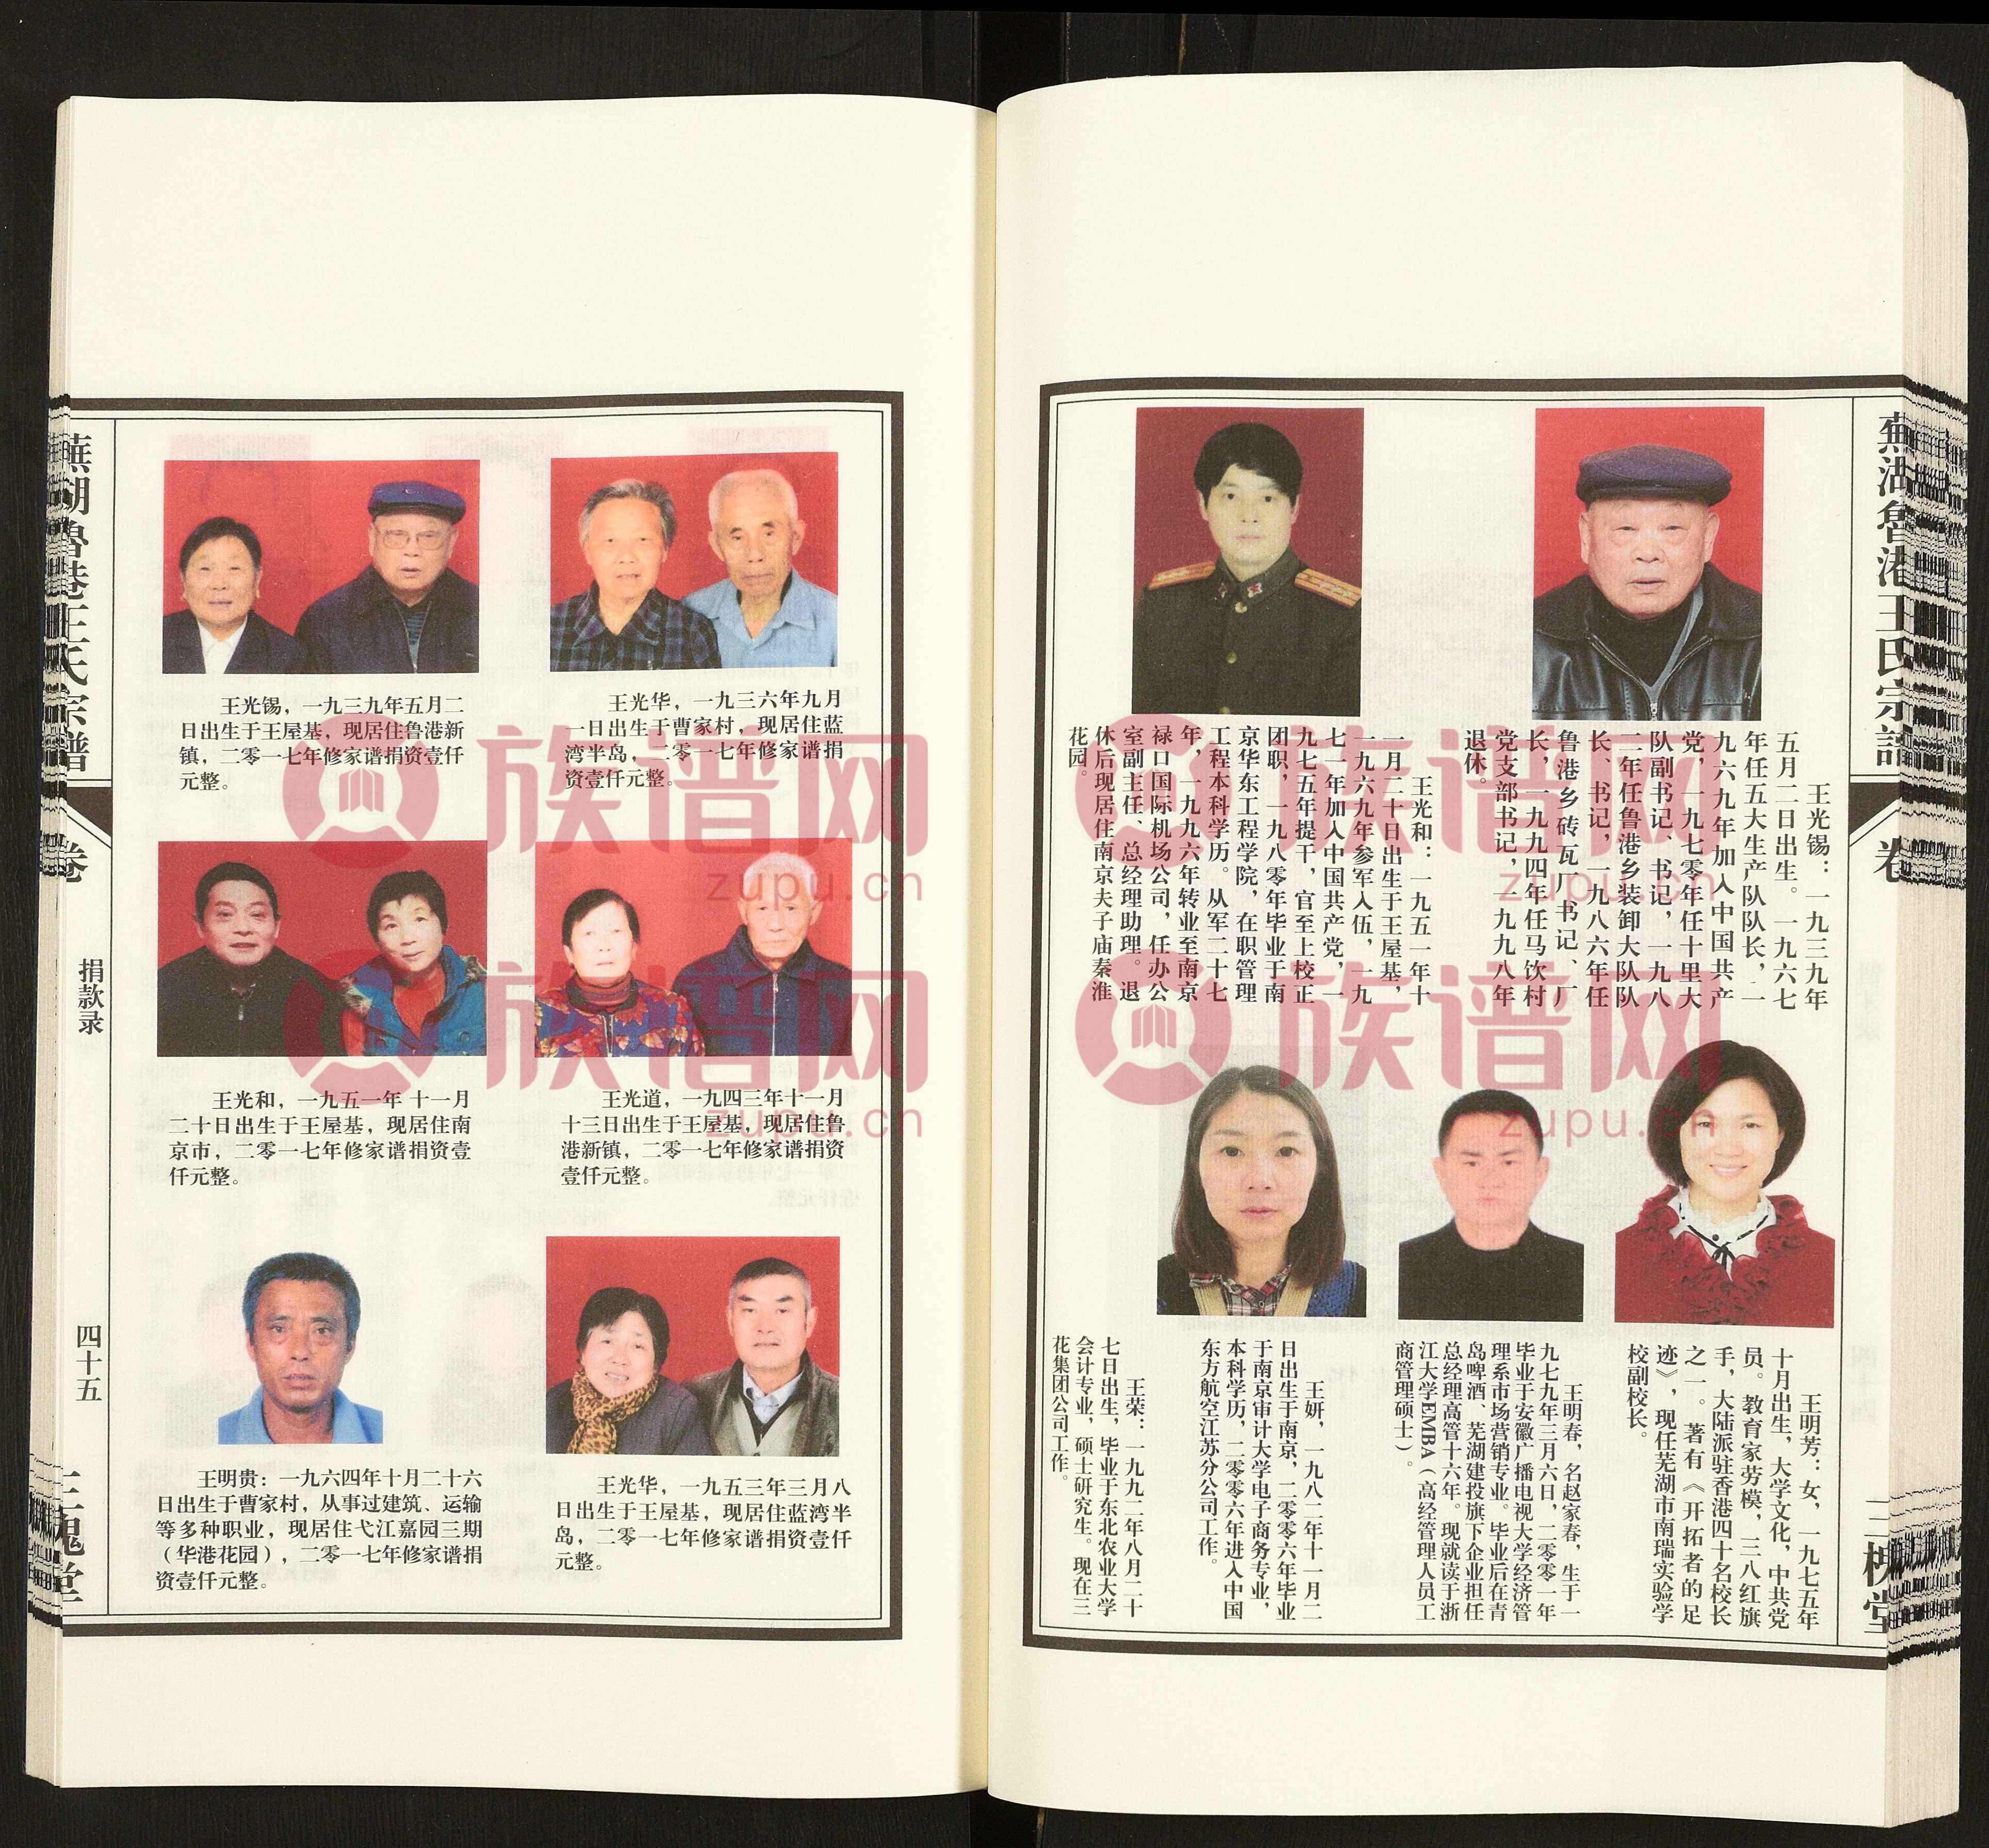 蕪湖魯港王氏宗譜
卷
三槐堂
王光锡：一九三九年
五月二日出生。一九六七
年任五大生产队队长，一
九六九年加入中国共产
党，一九七零年任十里大
队副书记、书记，一九八
二年任鲁港乡装卸大队队
长、书记，一九八六年任
鲁港乡砖瓦厂书记、厂
长，一九九四年任马饮村
党支部书记，一九九八年
退休。
王光和：一九五一年十
一月二十日出生于王屋基，
一九六九年参军入伍，一九
七一年加入中国共产党，一
九七五年提干，官至上校正
团职，一九八零年毕业于南
京华东工程学院，在职管理
工程本科学历。从军二十七
年，一九九六年转业至南京
禄口国际机场公司，任办公
室副主任、总经理助理。退
休后现居住南京夫子庙秦淮
花园。
王明芳：女，一九七五年
十月出生，大学文化，中共党
员。教育家劳模，三八红旗
手，大陆派驻香港四十名校长
之一。著有《开拓者的足
迹》，现任芜湖市南瑞实验学
校副校长。
王明春，名赵家春，生于一
九七九年三月六日，二零零一年
毕业于安徽广播电视大学经济管
理系市场营销专业。毕业后在青
岛啤酒、芜湖建投旗下企业担任
总经理高管十六年。现就读于浙
江大学EMBA（高经管理人员工
商管理硕士）。
王妍，一九八二年十一月二
日出生于南京，二零零六年毕业
于南京审计大学电子商务专业，
本科学历，二零零六年进入中国
东方航空江苏分公司工作。
王荣：一九九二年八月二十
七日出生，毕业于东北农业大学
会计专业，硕士研究生。现在三
花集团公司工作。
王光华，一九三六年九月
一日出生于曹家村，现居住蓝
湾半岛，二零一七年修家谱捐
资壹仟元整。
王光锡，一九三九年五月二
日出生于王屋基，现居住鲁港新
镇，二零一七年修家谱捐资壹仟
元整。
王光道，一九四三年十一月
十三日出生于王屋基，现居住鲁
港新镇，二零一七年修家谱捐资
壹仟元整。
王光和，一九五一年十一月
二十日出生于王屋基，现居住南
京市，二零一七年修家谱捐资壹
仟元整。
王光华，一九五三年三月八
日出生于王屋基，现居住蓝湾半
岛，二零一七年修家谱捐资壹仟
元整。
王明贵：一九六四年十月二十六
日出生于曹家村，从事过建筑、运输
等多种职业，现居住弋江嘉园三期
（华港花园），二零一七年修家谱捐
资壹仟元整。
蕪湖魯港王氏宗譜
卷
捐款录
四十五
三槐堂
族谱网
zupu.cn
族谱网
zupu.cn
族谱网
zupu.cn
族谱网
zupu.cn